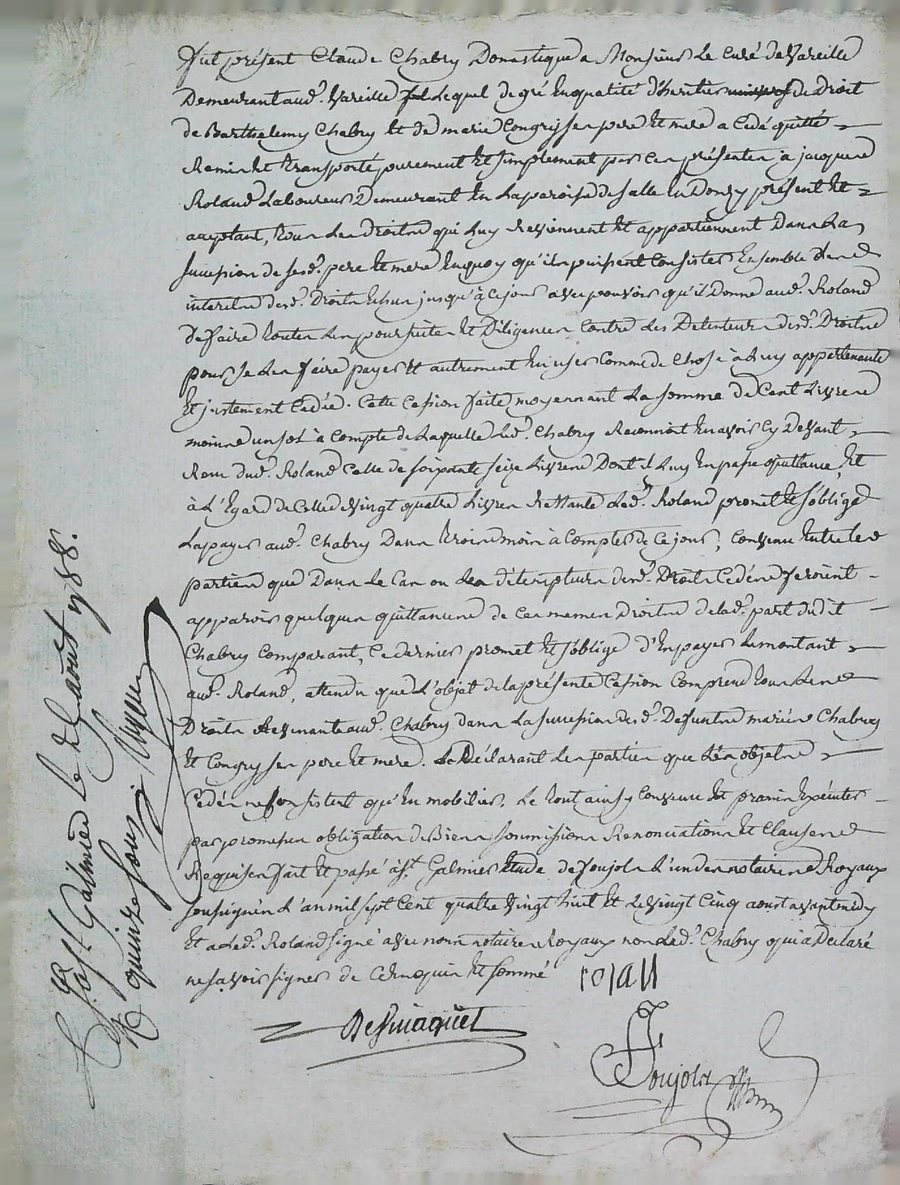 Fut présent Claude Chabry Domestique a Monsieur Le curé de Vareille
Demeurant aud. Vareille Lequel de gré En qualité d'heritier de Droit
de Barthelemy Chabry Et de marie Congry ses pere Et mere a Cedé quitté
Remis Et transporté purement Et simplement par Ces présentes à jacques
Roland Laboureur Demeurant En La paroisse de Salle En Donzy présent Et
acceptant, tous Les Droits qui Luy Reviennent Et appartiennent Dans La
succession de sesd. pere Et mere En quoy qu'ils puissent Consister Ensemble Les
interets desd. Droits Echus jusqu'à Ce jour avec pouvoir qu'il Donne aud. Roland
de faire toutes Les poursuites Et Diligences Contre Les Detenteurs desd. Droits
pour se Les faire payer Et autrement En user Comme de Chose à Luy appartenante
Et justement Cedée. Cette Cession faite moyennant La somme de Cent Livres
moins un sol à Compte de Laquelle Led. Chabry Reconnoit En avoir Cy Devant
Reçu dud. Roland Celle de soixante seize Livres Dont il Luy En passe quittance, Et
à L'Egard de Celle de Vingt quatre Livres Restante Led. Roland promet Et s'oblige
La payer aud. Chabry Dans trois mois à Compter de Ce jour, Convenu Entre Les
parties que Dans Le Cas ou Les détempteurs desd. Droits Cédés feroient
apparoir quelques quittances de Ces memes Droits de La part dudit
Chabry Comparant, Ce dernier promet Et s'oblige D'En payer Le montant
aud. Roland, attendu que L'objet de La présente Cession Comprend tous Les
Droits Revenants aud. Chabry dans La succession desd. Defunts mariés Chabry
Et Congry ses pere Et mere. Déclarant Les parties que Les objets
Cédés ne Consistent qu'En mobilier. Le tout ainsy Convenu Et promis Exécuter
par promesses obligation de Biens soumissions Renonciations Et Clauses
Requises fait Et passé à St. Galmier Etude de Foujols L'un des notaires Royaux
soussignés L'an mil sept Cent quatre Vingt huit Et Le Vingt Cinq aoust avant midy
Et a Led. Roland signé avec nous notaires Royaux non Led. Chabry qui a Déclaré
ne sçavoir signer de Ce Enquis Et sommé
rolan
Foujols
à St. Galmier Le aoust 1788.
quinze sous